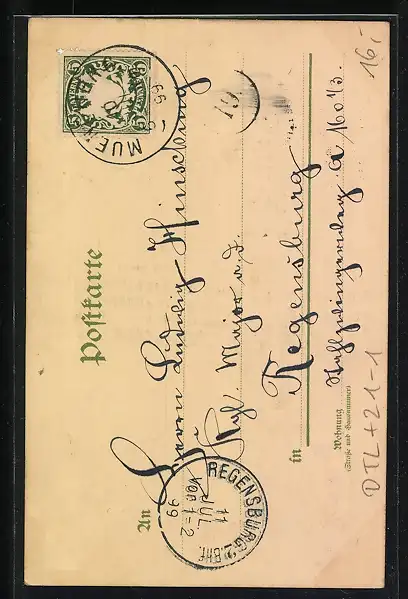 Postkarte
An Herrn Ludwig Hinsching
Kgl. Major a. D.
in Regensburg
Wohnung
(Straße und Hausnummer)
a No 43.
BAYERN
5 5
MUE
99
19
REGENSBURG 2. BHF.
11
JUL.
VOR 1=2
99
16,-
DTL+21-1